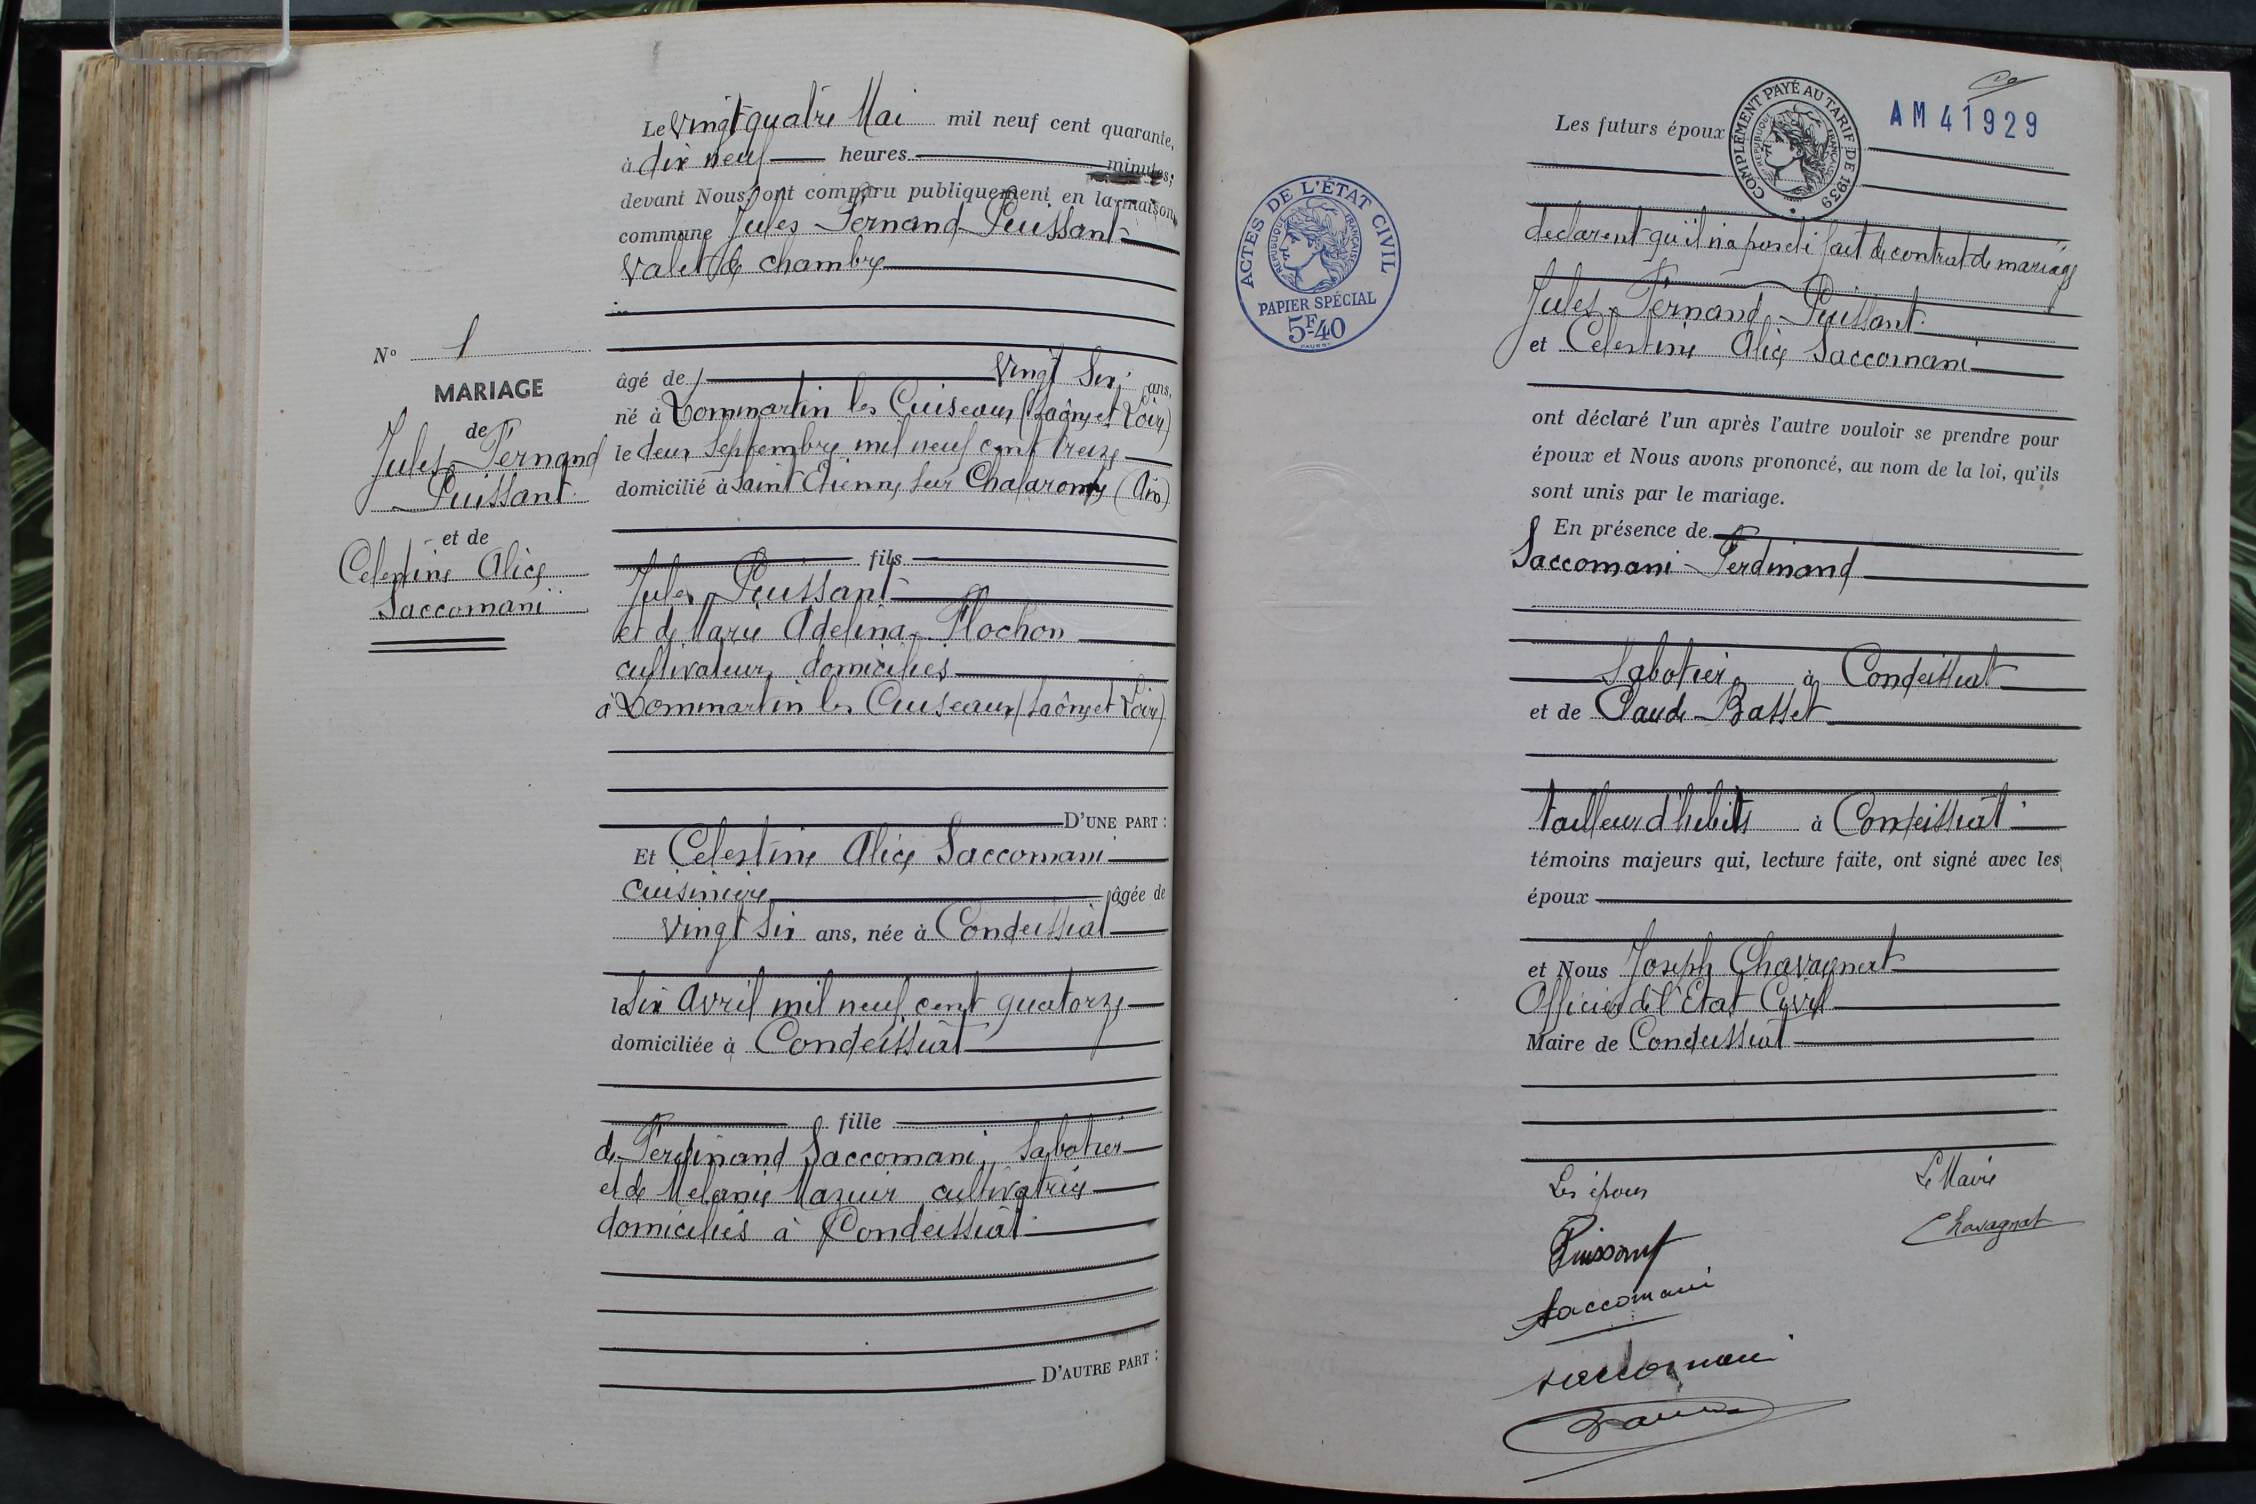 N° 1
MARIAGE
de
Jules Fernand
Puissant
et de
Celestine Alice
Saccomani
Le vingt quatre Mai mil neuf cent quarante,
à dix neuf heures minutes;
devant Nous, ont comparu publiquement en la maison
commune Jules Fernand Puissant
Valet de chambre
âgé de vingt six ans,
né à Dommartin les Cuiseaux (Saône et Loire)
le deux Septembre mil neuf cent treize
domicilié à Saint Etienne sur Chalaronne (Ain)
fils
Jules Puissant
et de Marie Adelina Flochon
cultivateurs domiciliés
à Dommartin les Cuiseaux (Saône et Loire)
D'UNE PART :
Et Celestine Alice Saccomani
cuisinière âgée de
vingt six ans, née à Condeissiat
le Six Avril mil neuf cent quatorze
domiciliée à Condeissiat
fille
de Ferdinand Saccomani, Sabotier
et de Melanie Mazuir cultivatrice
domiciliés à Condeissiat
D'AUTRE PART :
ACTES DE L'ÉTAT CIVIL
RÉPUBLIQUE FRANÇAISE
PAPIER SPÉCIAL
5F40
COMPLÉMENT PAYÉ AU TARIF DE 1939
RÉPUBLIQUE FRANÇAISE
AM 41929
Les futurs époux
declarent qu'il n'a pas été fait de contrat de mariage
Jules Fernand Puissant
et Celestine Alice Saccomani
ont déclaré l'un après l'autre vouloir se prendre pour
époux et Nous avons prononcé, au nom de la loi, qu'ils
sont unis par le mariage.
En présence de
Saccomani Ferdinand
Sabotier à Condeissiat
et de Claude Basset
tailleur d'habits à Condeissiat
témoins majeurs qui, lecture faite, ont signé avec les
époux
et Nous Joseph Chavagnat
Officier de l'Etat Civil
Maire de Condeissiat
Les époux Le Maire
Puissant Chavagnat
Saccomani
Saccomani